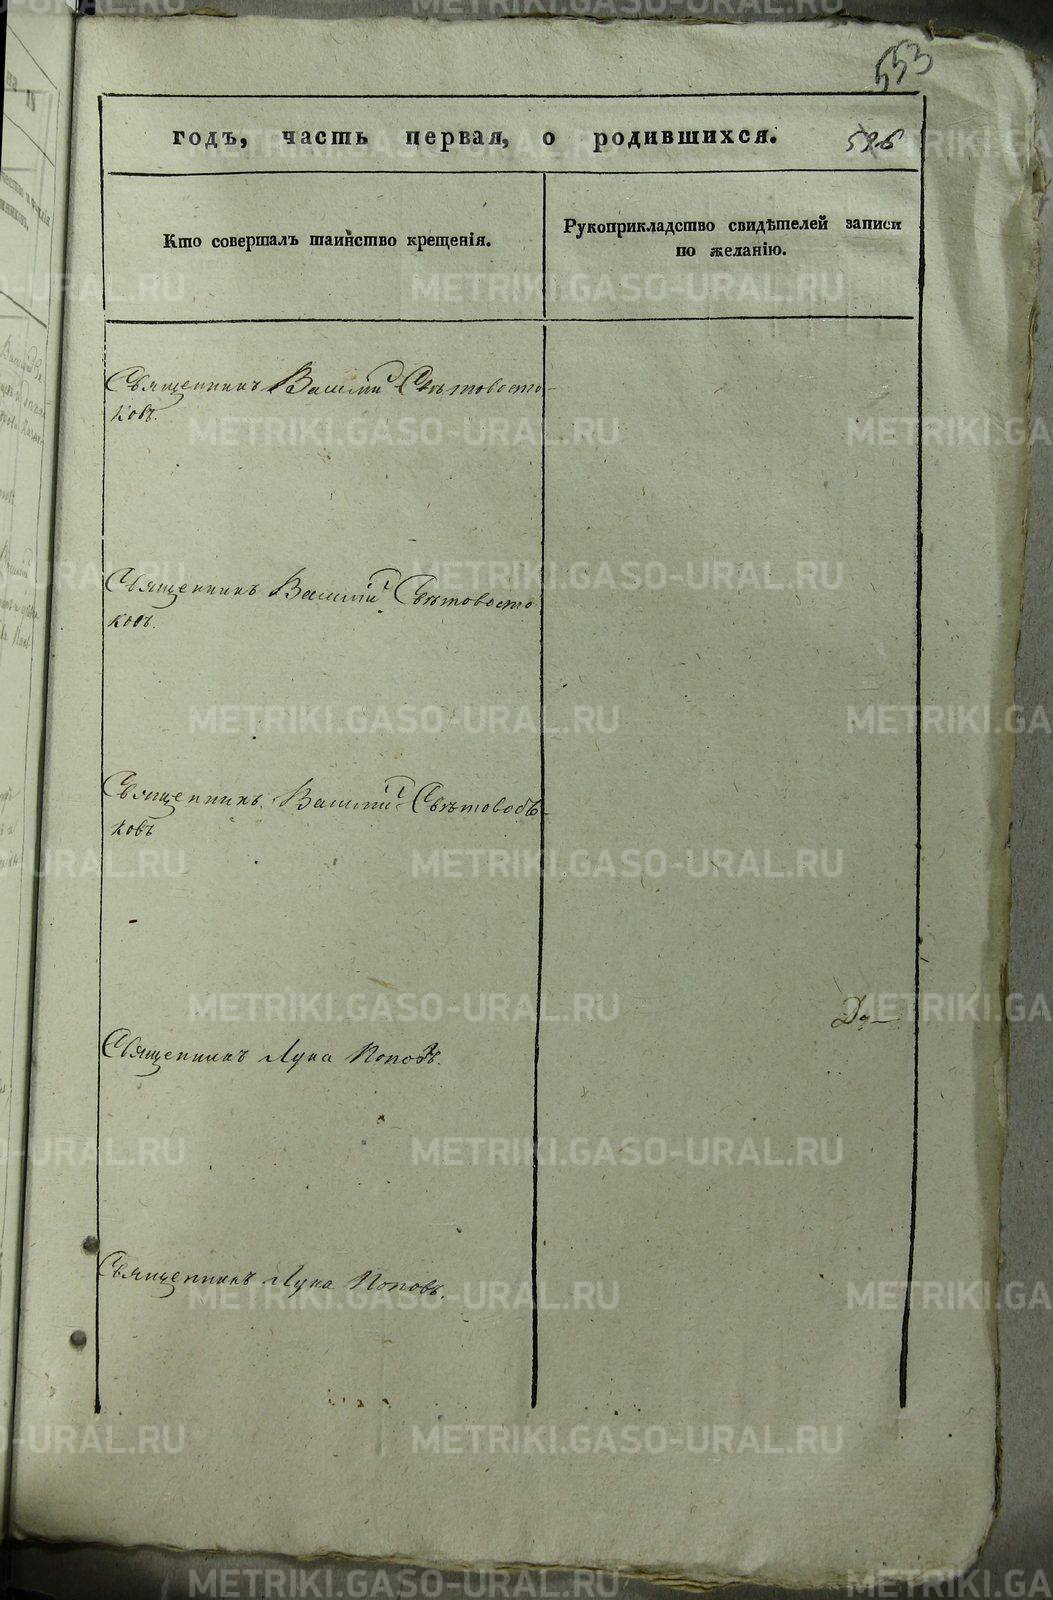 553
годъ, часть первая, о родившихся.
Кто совершалъ таинство крещенія.
Рукоприкладство свидѣтелей записи
по желанію.
Священникъ Василий Свѣтовосто-
ковъ.
Священникъ Василій Свѣтовосто
ковъ.
Священникъ Василий Свѣтовось-
ковъ
Священникъ Лука Поповъ.
Священникъ Лука Поповъ.
METRIKI.GASO-URAL.RU